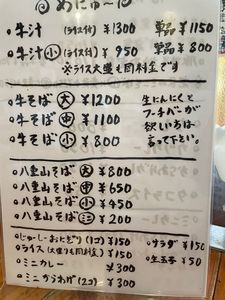 めにゅ〜
○牛汁 (ライス付) ¥1300 単品 ¥1150
○牛汁 小 (ライス付) ¥950 単品 ¥800
※ライス大盛も同料金です
○牛そば 大 ¥1200
○牛そば 中 ¥1100
○牛そば 小 ¥800
生にんにくと
フーチバーが
欲しい方は
言って下さい。
○八重山そば 大 ¥800
○八重山そば 中 ¥650
○八重山そば 小 ¥450
○八重山そば ミニ ¥200
○じゅーしーおにぎり (1コ) ¥150
○ライス (大盛りも同料金) ¥150
○ミニカレー ¥300
○ミニからあげ (2コ) ¥300
○サラダ ¥150
○生玉子 ¥50